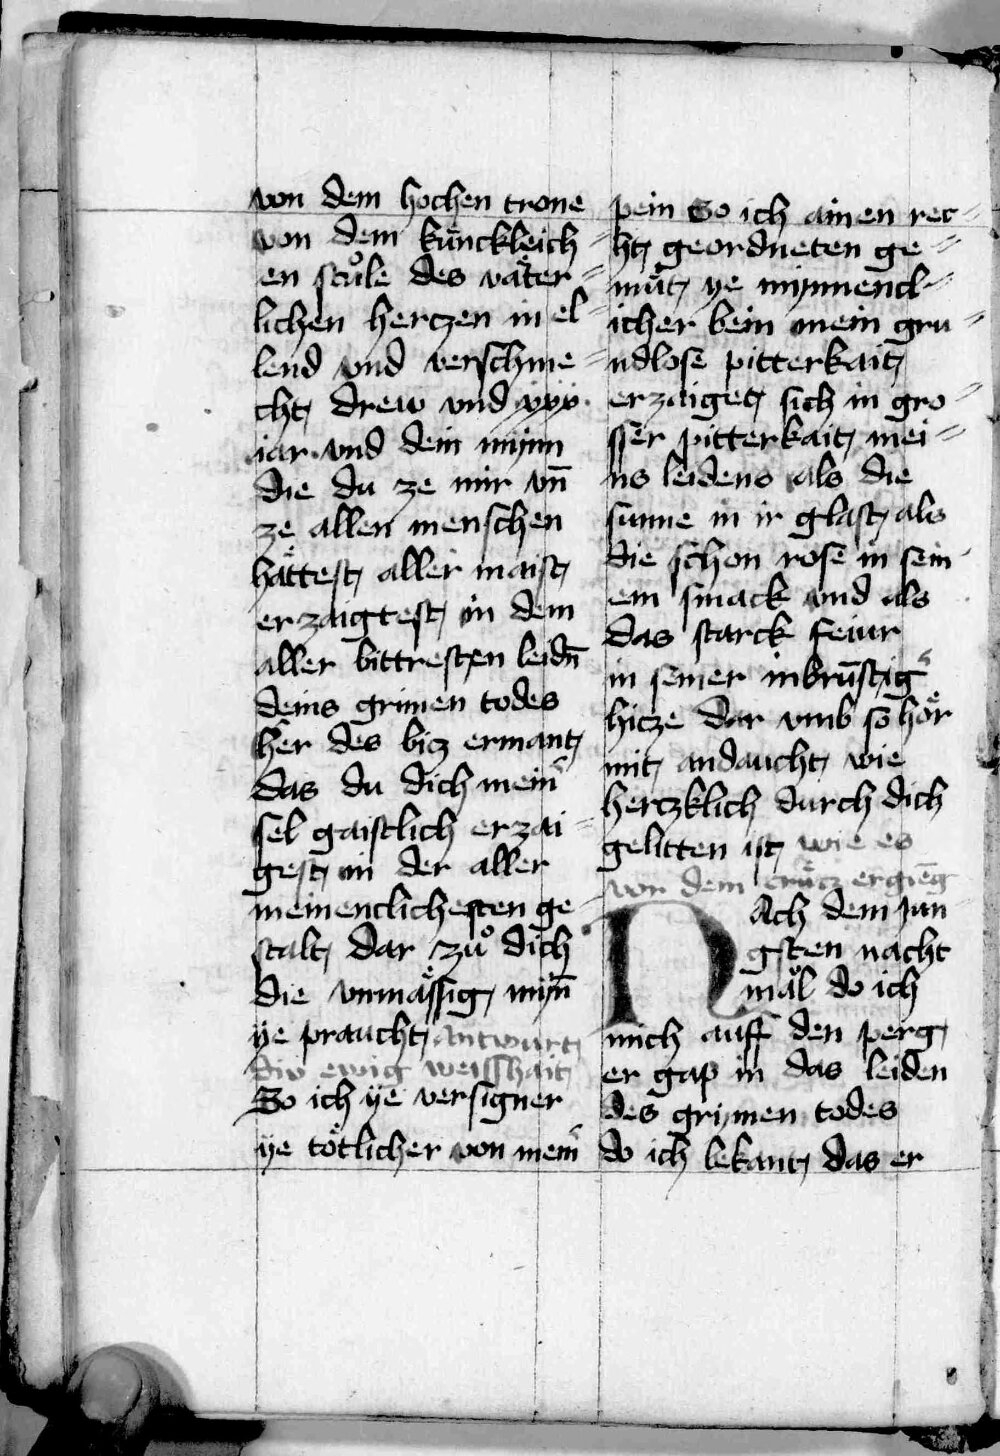 von dem hochen trone
von dem kuͤnckleich
en stuͦle des vaͤter
lichen hertzen in el
lend vnd verschme
cht drew vnd xxx
iar vnd dein mynn
die du ze mir vn̄
ze allen menschen
haͤttest aller maist
erzaigtest in dem
aller bittresten leidn̄
deins grimen todes
her des biz ermant
das du dich mein᷑
sel gaistlich erzai
gest in der aller
meinenclichesten ge
stalt dar zuͦ dich
die vnmaͤssig mỹn
ye praucht antwurt
div ewig weisshait
So ich ye versigner
ye toͤtlicher von mein᷑
pein So ich ainen rec
ht geordneten ge
muͤt ye mynnencl
icher bein mein gru
ndlose pitterkait
erzaiget sich in gro
sser pitterkait mei
ns leidens als die
sunne in ir glast als
die schon rose in sein
em smack vnd als
das starck feiur
in seiner inbrūstig᷑
hicze dar vmb so hoͤr
mit andaucht wie
hertzklich durch dich
gelitten ist wie es
vor dem cruͤtz ergieng
NAch dem jun
gsten nacht
mal do ich
mich auff den perg
er gap in das leiden
des grymen todes
do ich bekant das er